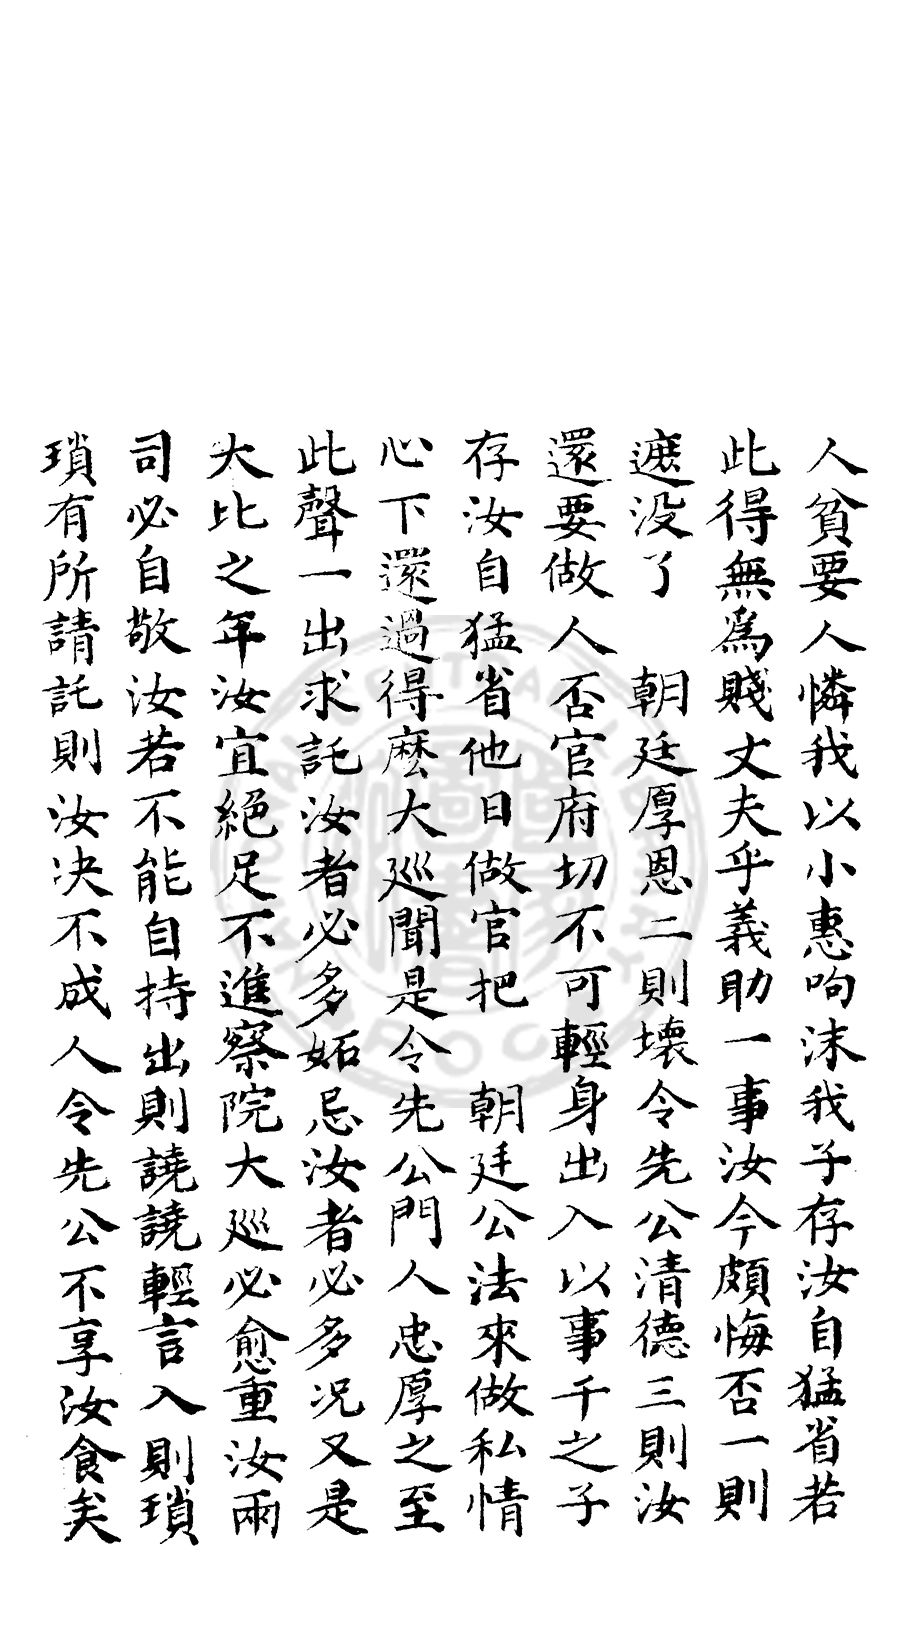 人貧要人憐我以小惠呴沫我子存汝自猛省若
此得無爲賤丈夫乎義助一事汝今頗悔否一則
遮没了　朝廷厚恩二則壞令先公清德三則汝
還要做人否官府切不可輕身出入以事千之子
存汝自猛省他日做官把　朝廷公法來做私情
心下還過得麽大巡聞是令先公門人忠厚之至
此聲一出求託汝者必多妬忌汝者必多况又是
大比之年汝宜絕足不進察院大巡必愈重汝兩
司必自敬汝若不能自持出則譊譊輕言入則瑣
瑣有所請託則汝决不成人令先公不享汝食矣